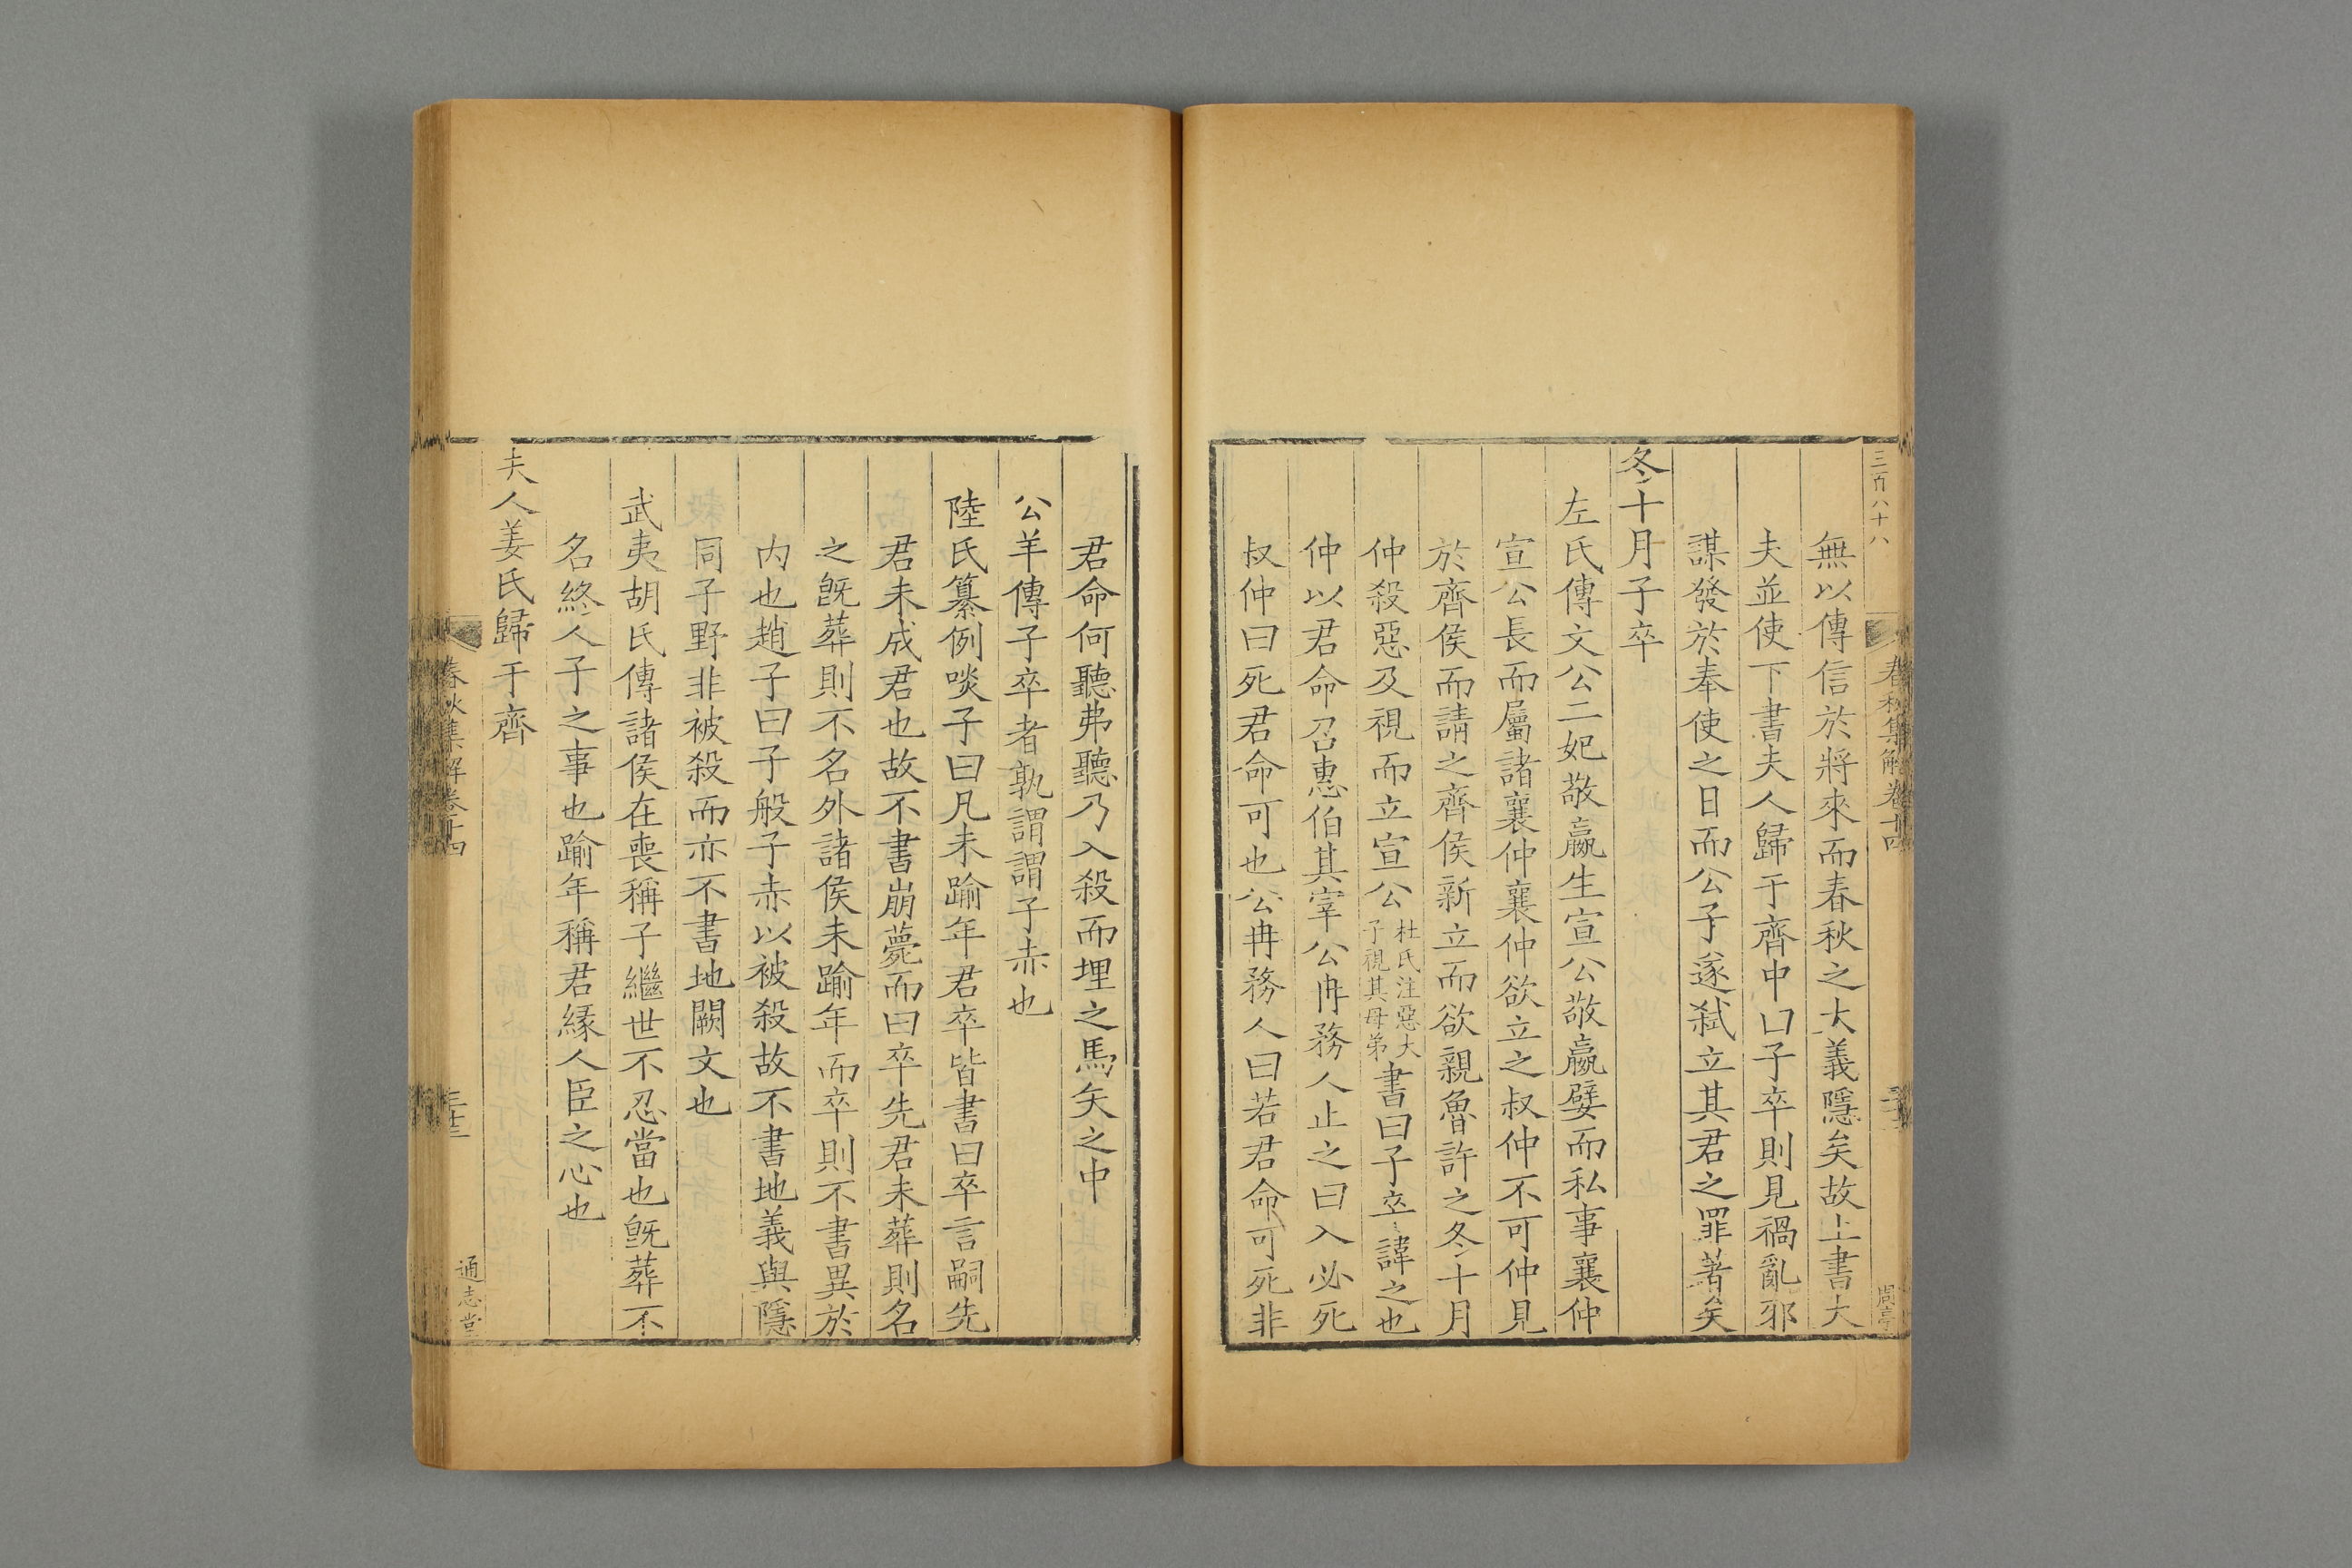 三百八十八
春秋集解卷十四
周亭
無以傳信於將來而春秋之大義隱矣故上書大
夫並使下書夫人歸于齊中曰子卒則見禍亂邪
謀發於奉使之日而公子遂弒立其君之罪著矣
冬十月子卒
左氏傳文公二妃敬嬴生宣公敬嬴嬖而私事襄仲
宣公長而屬諸襄仲襄仲欲立之叔仲不可仲見
於齊侯而請之齊侯新立而欲親魯許之冬十月
仲殺惡及視而立宣公杜氏注惡大子視其母弟書曰子卒諱之也
仲以君命召惠伯其宰公冉務人止之曰入必死
叔仲曰死君命可也公冉務人曰若君命可死非
君命何聽弗聽乃入殺而埋之馬矢之中
公羊傳子卒者孰謂謂子赤也
陸氏纂例啖子曰凡未踰年君卒皆書曰卒言嗣先
君未成君也故不書崩薨而曰卒先君未葬則名
之旣葬則不名外諸侯未踰年而卒則不書異於
內也趙子曰子般子赤以被殺故不書地義與隱
同子野非被殺而亦不書地闕文也
武夷胡氏傳諸侯在喪稱子繼世不忍當也旣葬不
名終人子之事也踰年稱君緣人臣之心也
夫人姜氏歸于齊
春秋集解卷十四
通志堂